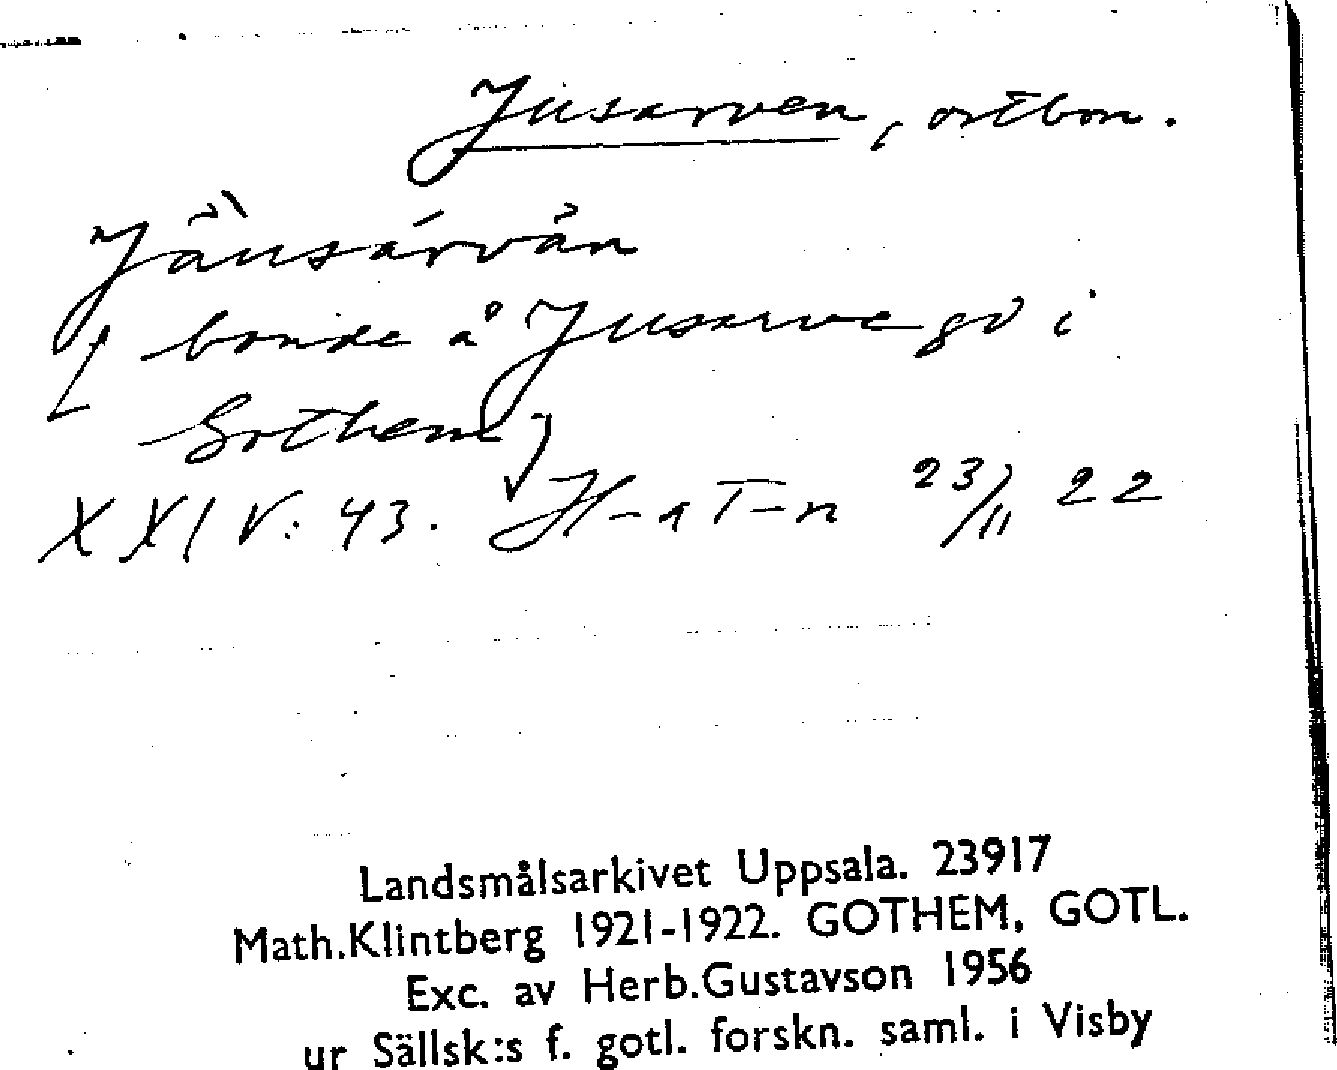 Jusarven, ortbon.
Jäusárvån
[bonde å Jusarve gd i
Gothem]
XXIV: 43. H–n T–n 23/11 22
Landsmålsarkivet Uppsala. 23917
Math.Klintberg 1921-1922. GOTHEM, GOTL.
Exc. av Herb.Gustavson 1956
ur Sällsk:s f. gotl. forskn. saml. i Visby